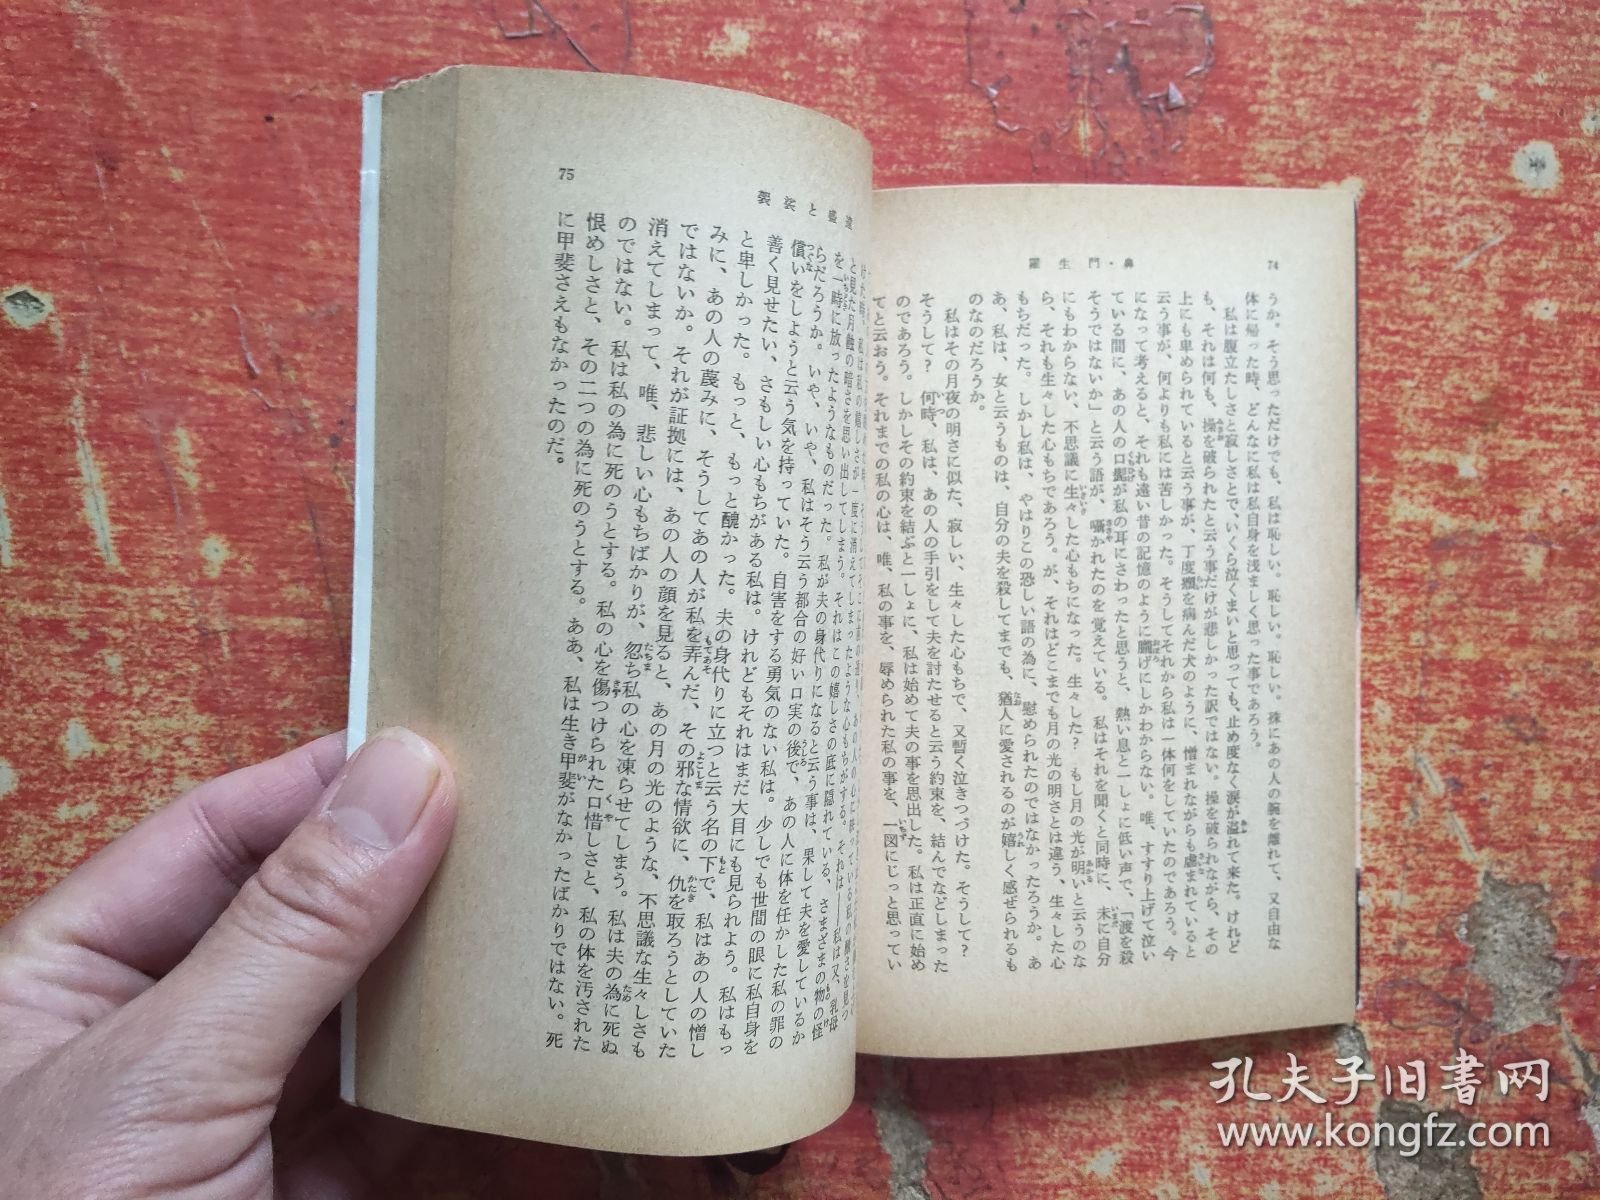 74
羅生門・鼻
うか。そう思っただけでも、私は恥しい。恥しい。恥しい。殊にあの人の腕を離れて、又自由な
体に帰った時、どんなに私は私自身を浅ましく思った事であろう。
私は腹立たしさと寂しさとで、いくら泣くまいと思っても、止め度なく涙が溢れて来た。けれど
も、それは何も、操を破られたと云う事だけが悲しかった訳ではない。操を破られながら、その
上にも卑められていると云う事が、丁度癩を病んだ犬のように、憎まれながらも虐まれていると
云う事が、何よりも私には苦しかった。そうしてそれから私は一体何をしていたのであろう。今
になって考えると、それも遠い昔の記憶のように朧げにしかわからない。唯、すすり上げて泣い
ている間に、あの人の口髭が私の耳にさわったと思うと、熱い息と一しょに低い声で、「渡を殺
そうではないか」と云う語が、囁かれたのを覚えている。私はそれを聞くと同時に、未に自分
にもわからない、不思議に生々した心もちになった。生々した?　もし月の光が明いと云うのな
ら、それも生々した心もちであろう。が、それはどこまでも月の光の明さとは違う、生々した心
もちだった。しかし私は、やはりこの恐しい語の為に、慰められたのではなかったろうか。あ
あ、私は、女と云うものは、自分の夫を殺してまでも、猶人に愛されるのが嬉しく感ぜられるも
のなのだろうか。
私はその月夜の明さに似た、寂しい、生々した心もちで、又暫く泣きつづけた。そうして?
そうして?　何時、私は、あの人の手引をして夫を討たせると云う約束を、結んでなどしまった
のであろう。しかしその約束を結ぶと一しょに、私は始めて夫の事を思出した。私は正直に始め
てと云おう。それまでの私の心は、唯、私の事を、辱められた私の事を、一図にじっと思ってい
75
袈裟と盛遠
と見た月蝕の暗さを思い出してしまう。それはこの嬉しさの底に隠れている、さまざまの物の怪
を一時に放ったようなものだった。私が夫の身代りになると云う事は、果して夫を愛しているか
らだろうか。いや、いや、私はそう云う都合の好い口実の後で、あの人に体を任かした私の罪の
償いをしようと云う気を持っていた。自害をする勇気のない私は。少しでも世間の眼に私自身を
善く見せたい、さもしい心もちがある私は。けれどもそれはまだ大目にも見られよう。私はもっ
と卑しかった。もっと、もっと醜かった。夫の身代りに立つと云う名の下で、私はあの人の憎し
みに、あの人の蔑みに、そうしてあの人が私を弄んだ、その邪な情欲に、仇を取ろうとしていた
ではないか。それが証拠には、あの人の顔を見ると、あの月の光のような、不思議な生々しさも
消えてしまって、唯、悲しい心もちばかりが、忽ち私の心を凍らせてしまう。私は夫の為に死ぬ
のではない。私は私の為に死のうとする。私の心を傷つけられた口惜しさと、私の体を汚された
恨めしさと、その二つの為に死のうとする。ああ、私は生き甲斐がなかったばかりではない。死
に甲斐さえもなかったのだ。
孔夫子旧书网
www.kongfz.com